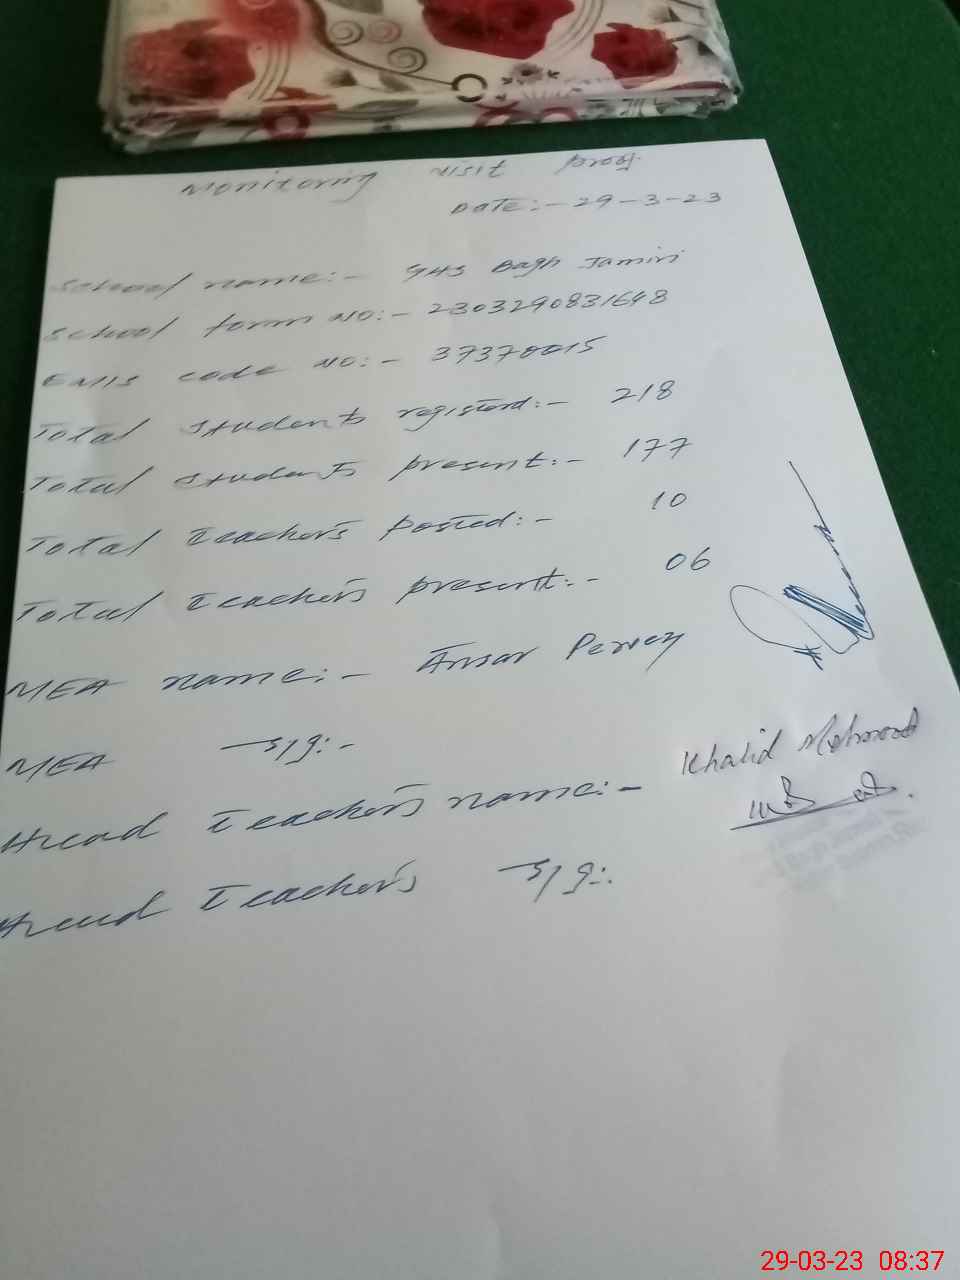 Monitoring visit proof
Date:- 29-3-23
School name:- GHS Bagh Jamiri
School form No:- 2303290831648
EMIS code No:- 37370015
Total students registerd:- 218
Total students present:- 177
Total teacher's posted:- 10
Total teacher's present:- 06
MEA name:- Ansar Pervez
MEA sig:-
Head teacher's name:- Khalid Mehmood
Head teacher's sig:-
29-03-23 08:37